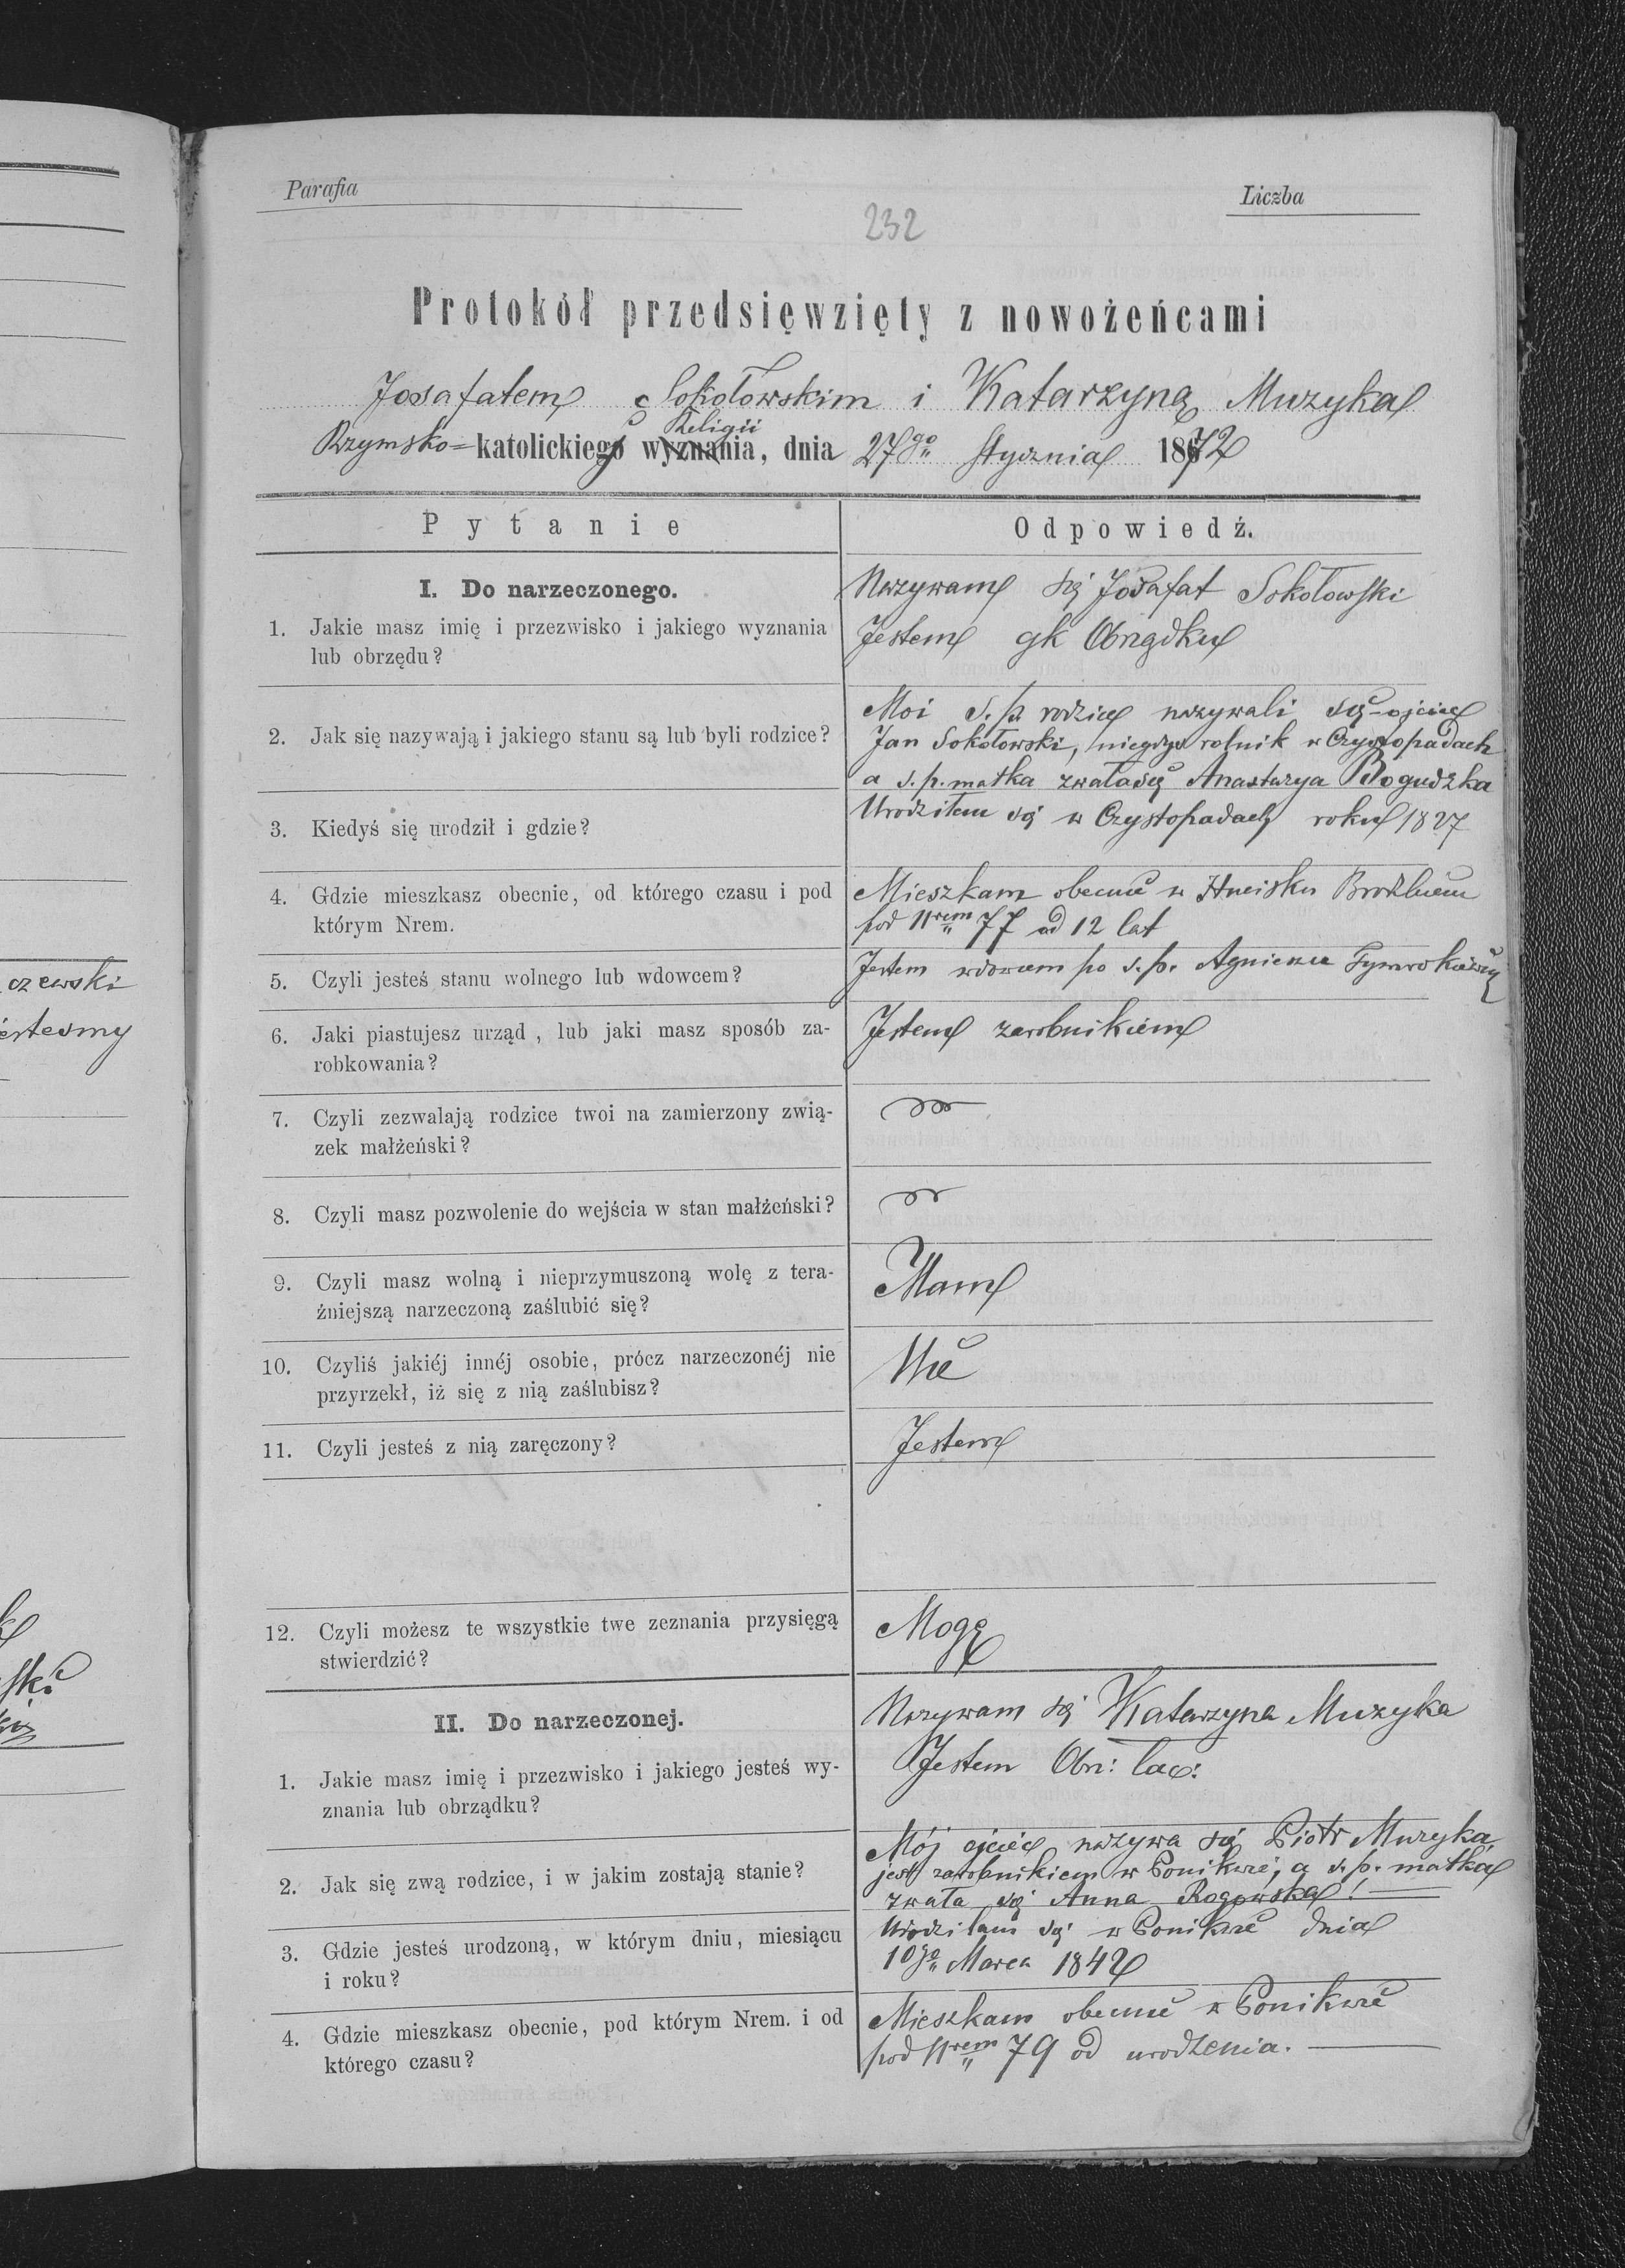 Parafia
Liczba
232
Protokół przedsięwzięty z nowożeńcami
Josafatem Sokołowskim i Katarzyną Muzyka
Religii
Rzymsko=katolickiego wyznania, dnia 27go Stycznia 1872
Pytanie
Odpowiedź.
I. Do narzeczonego.
1. Jakie masz imię i przezwisko i jakiego wyznania
lub obrzędu?
Nazywam się Josafat Sokołowski
Jestem gk Obrządku
2. Jak się nazywają i jakiego stanu są lub byli rodzice?
Moi s. p. rodzice nazywali się – ojciec
Jan Sokołowski, niegdyś rolnik w Czystopadach
a s. p. matka zwała się Anastazya
3. Kiedyś się urodził i gdzie?
Urodziłem się w Czystopadach roku 1827
4. Gdzie mieszkasz obecnie, od którego czasu i pod
którym Nrem.
Mieszkam obecnie w Hucisku
pod Nrem 77 od 12 lat
5. Czyli jesteś stanu wolnego lub wdowcem?
Jestem wdowcem po s. p.
6. Jaki piastujesz urząd, lub jaki masz sposób za-
robkowania?
Jestem zarobnikiem
7. Czyli zezwalają rodzice twoi na zamierzony zwią-
zek małżeński?
8. Czyli masz pozwolenie do wejścia w stan małżeński?
9. Czyli masz wolną i nieprzymuszoną wolę z tera-
źniejszą narzeczoną zaślubić się?
Mam
10. Czyliś jakiéj innéj osobie, prócz narzeczonéj nie
przyrzekł, iż się z nią zaślubisz?
Nie
11. Czyli jesteś z nią zaręczony?
Jestem
12. Czyli możesz te wszystkie twe zeznania przysięgą
stwierdzić?
Mogę
II. Do narzeczonej.
1. Jakie masz imię i przezwisko i jakiego jesteś wy-
znania lub obrządku?
Nazywam się Katarzyna Muzyka
Jestem Obrz: łac:
2. Jak się zwą rodzice, i w jakim zostają stanie?
Mój ojciec nazywa się Piotr Muzyka,
jest zarobnikiem w Ponikwie, a s. p. matka
zwała się Anna Rogowska! —
3. Gdzie jesteś urodzoną, w którym dniu, miesiącu
i roku?
Urodziłam się w Ponikwie dnia
10go Marca 1842
4. Gdzie mieszkasz obecnie, pod którym Nrem. i od
którego czasu?
Mieszkam obecnie w Ponikwie
pod Nrem 79 od urodzenia. —